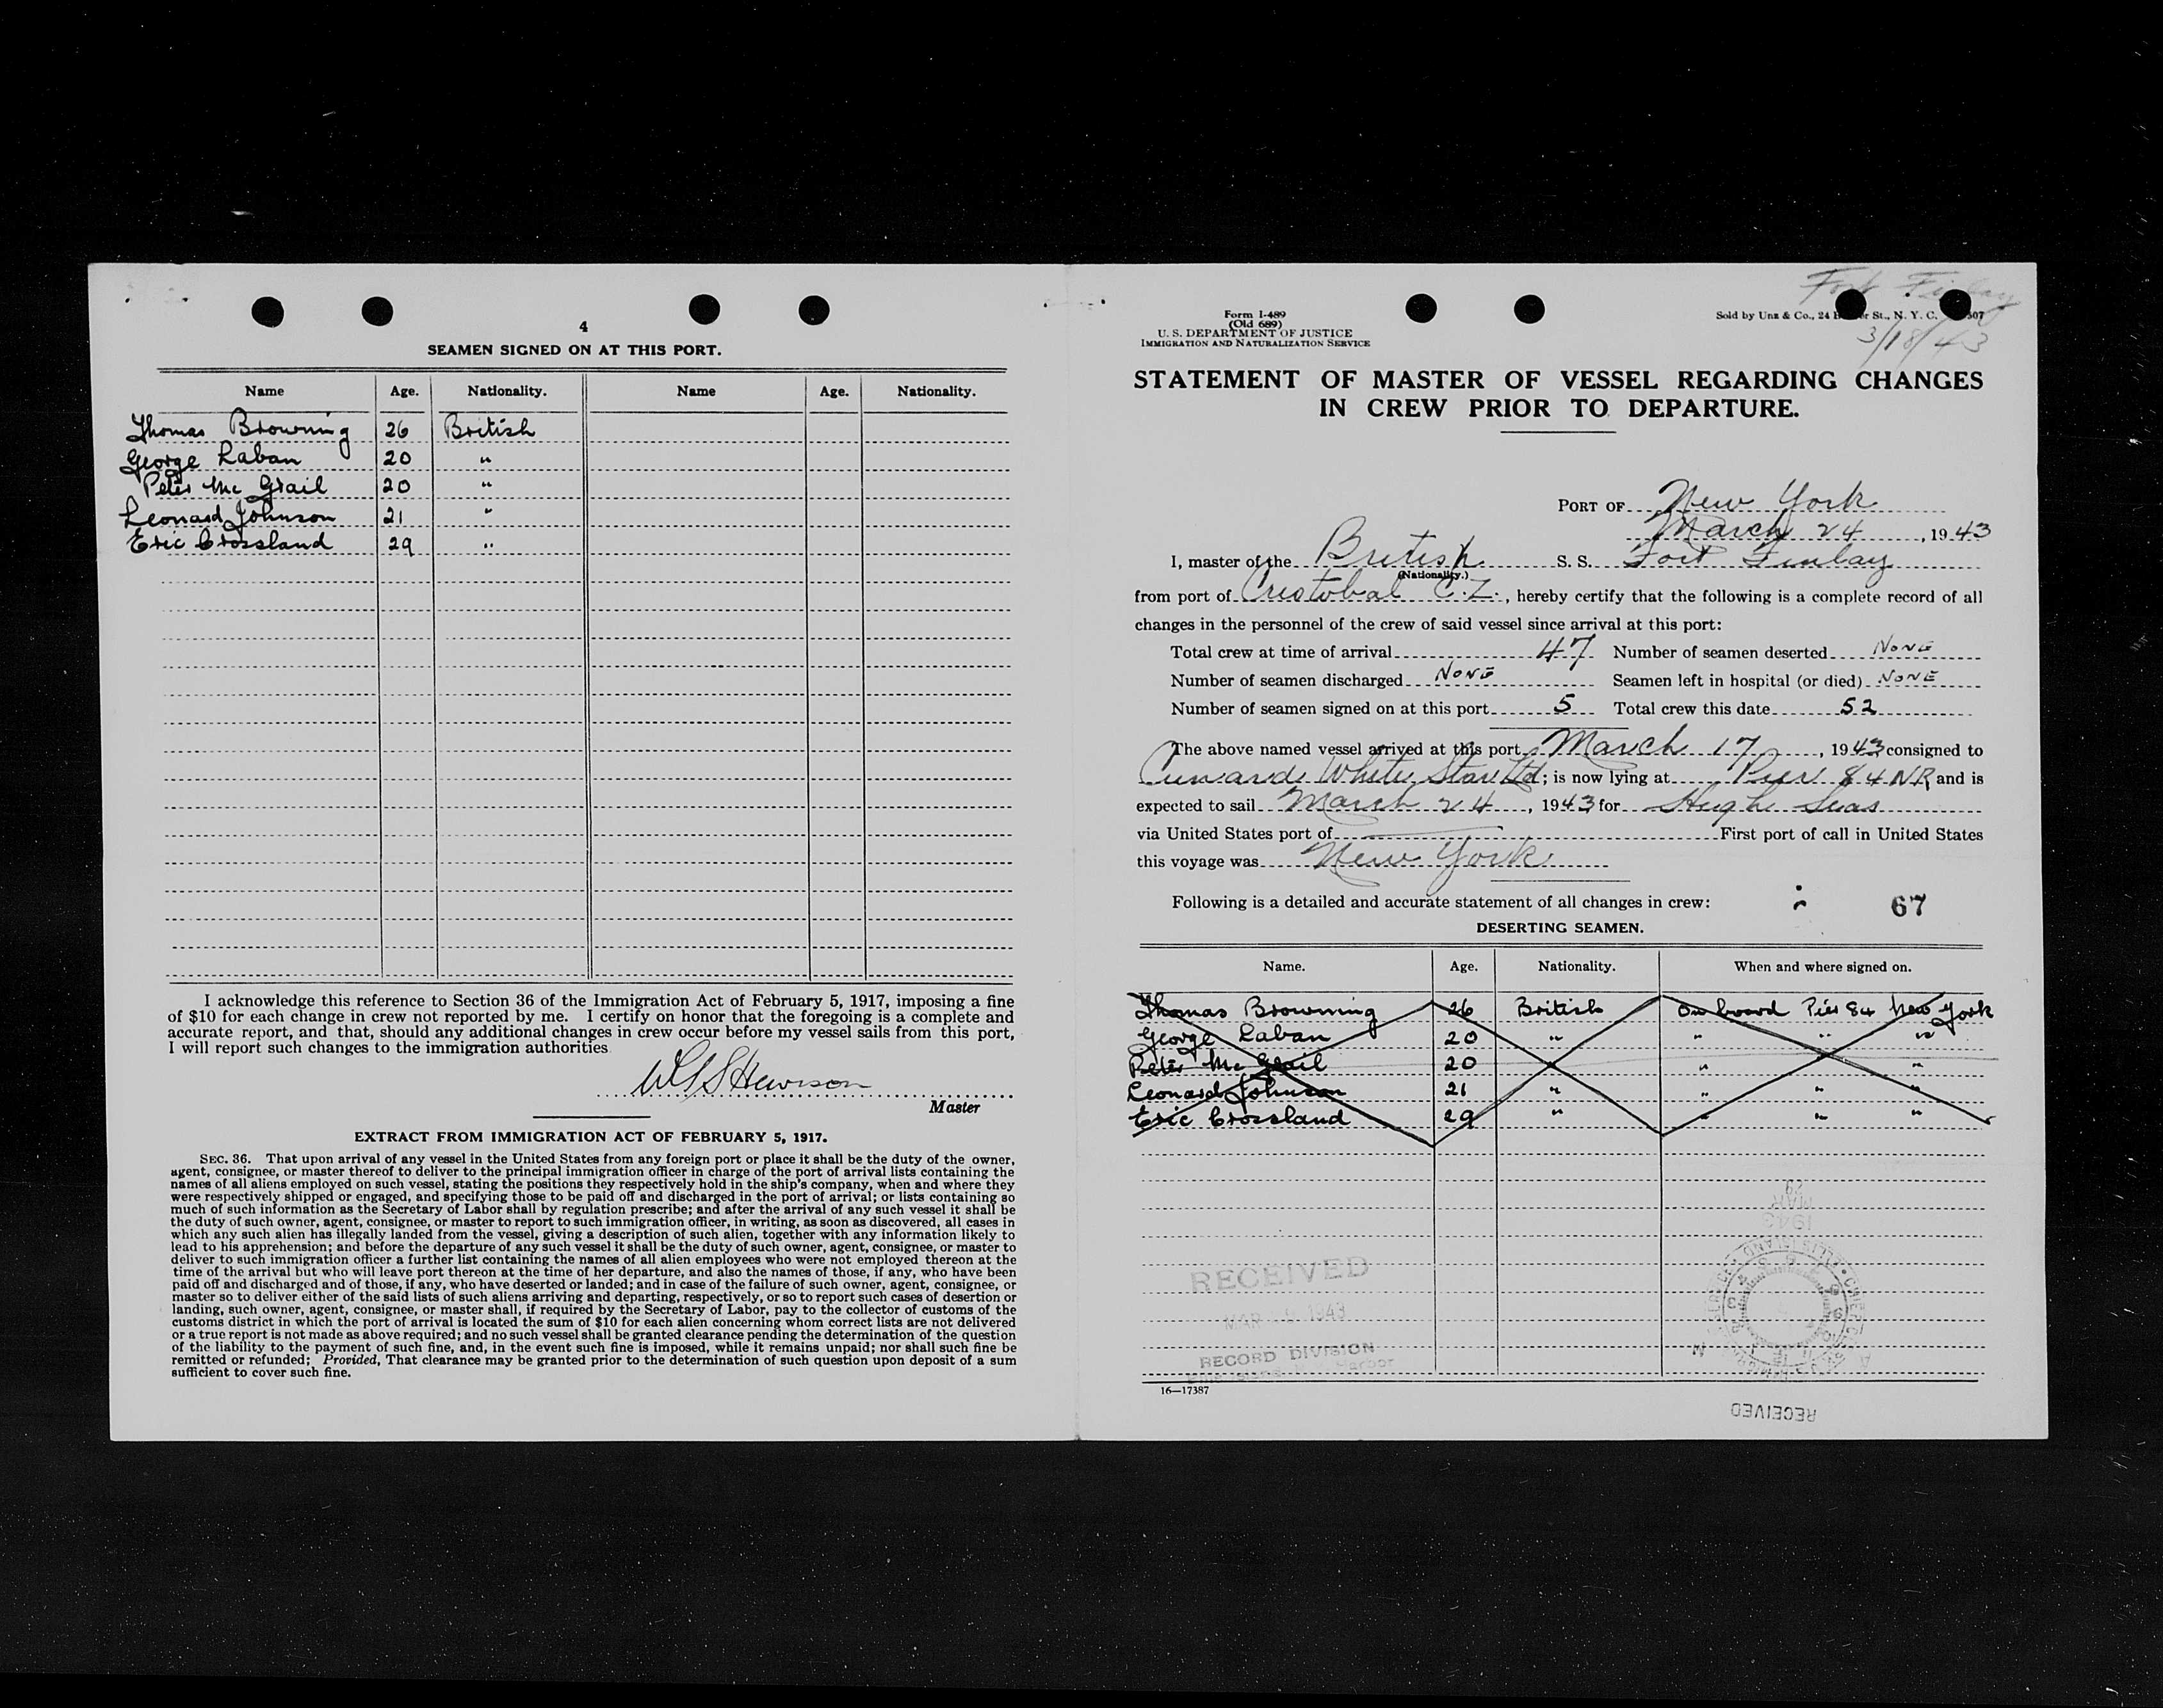 4
SEAMEN SIGNED ON AT THIS PORT.
Name Age. Nationality. Name Age. Nationality.
Thomas Browning 26 British
George Laban 20 "
Peter Mc Grail 20 "
Leonard Johnson 21 "
Eric Crossland 29 "
I acknowledge this reference to Section 36 of the Immigration Act of February 5, 1917, imposing a fine
of $10 for each change in crew not reported by me. I certify on honor that the foregoing is a complete and
accurate report, and that, should any additional changes in crew occur before my vessel sails from this port,
I will report such changes to the immigration authorities
Hewison
Master
EXTRACT FROM IMMIGRATION ACT OF FEBRUARY 5, 1917.
SEC. 36. That upon arrival of any vessel in the United States from any foreign port or place it shall be the duty of the owner,
agent, consignee, or master thereof to deliver to the principal immigration officer in charge of the port of arrival lists containing the
names of all aliens employed on such vessel, stating the positions they respectively hold in the ship's company, when and where they
were respectively shipped or engaged, and specifying those to be paid off and discharged in the port of arrival; or lists containing so
much of such information as the Secretary of Labor shall by regulation prescribe; and after the arrival of any such vessel it shall be
the duty of such owner, agent, consignee, or master to report to such immigration officer, in writing, as soon as discovered, all cases in
which any such alien has illegally landed from the vessel, giving a description of such alien, together with any information likely to
lead to his apprehension; and before the departure of any such vessel it shall be the duty of such owner, agent, consignee, or master to
deliver to such immigration officer a further list containing the names of all alien employees who were not employed thereon at the
time of the arrival but who will leave port thereon at the time of her departure, and also the names of those, if any, who have been
paid off and discharged and of those, if any, who have deserted or landed; and in case of the failure of such owner, agent, consignee, or
master so to deliver either of the said lists of such aliens arriving and departing, respectively, or so to report such cases of desertion or
landing, such owner, agent, consignee, or master shall, if required by the Secretary of Labor, pay to the collector of customs of the
customs district in which the port of arrival is located the sum of $10 for each alien concerning whom correct lists are not delivered
or a true report is not made as above required; and no such vessel shall be granted clearance pending the determination of the question
of the liability to the payment of such fine, and, in the event such fine is imposed, while it remains unpaid; nor shall such fine be
remitted or refunded; Provided, That clearance may be granted prior to the determination of such question upon deposit of a sum
sufficient to cover such fine.
Fort Finlay
3/18/43
Form I-489
(Old 689)
U. S. DEPARTMENT OF JUSTICE
IMMIGRATION AND NATURALIZATION SERVICE
Sold by Unz & Co., 24 St., N. Y. C.
STATEMENT OF MASTER OF VESSEL REGARDING CHANGES
IN CREW PRIOR TO DEPARTURE.
PORT OF New York
March 24, 1943
I, master of the British S. S. Fort Finlay
(Nationality.)
from port of Cristobal C.Z., hereby certify that the following is a complete record of all
changes in the personnel of the crew of said vessel since arrival at this port:
Total crew at time of arrival 47 Number of seamen deserted NONE
Number of seamen discharged NONE Seamen left in hospital (or died) NONE
Number of seamen signed on at this port 5 Total crew this date 52
The above named vessel arrived at this port March 17, 1943 consigned to
Cunard White Star Ltd; is now lying at Pier 84 NR and is
expected to sail March 24, 1943 for High Seas
via United States port of First port of call in United States
this voyage was New York
Following is a detailed and accurate statement of all changes in crew:
67
DESERTING SEAMEN.
Name. Age. Nationality. When and where signed on.
Thomas Browning 26 British On board Pier 84 New York
George Laban 20 " " " "
Peter Mc Grail 20 " "
Leonard Johnson 21 " " " "
Eric Crossland 29 " " " "
MAR
1943
RECEIVED
MAR 1943
RECORD DIVISION
16—17387
RECEIVED